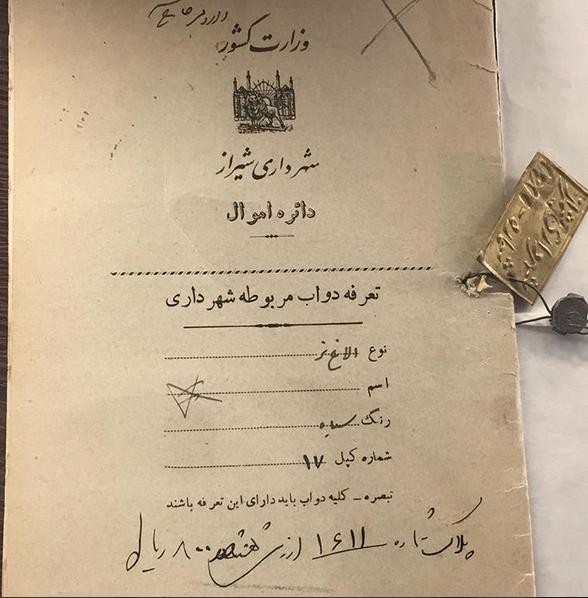 وزارت کشور
شهرداری شیراز
دائره اموال
تعرفه دواب مربوطه شهرداری
نوع الاغ نر
اسم
رنگ سیاه
شماره کپل ۱۷
تبصره - کلیه دواب باید دارای این تعرفه باشند
پلاک شماره ۱۶۱۱ ارزش هشتصد ۸۰۰ ریال